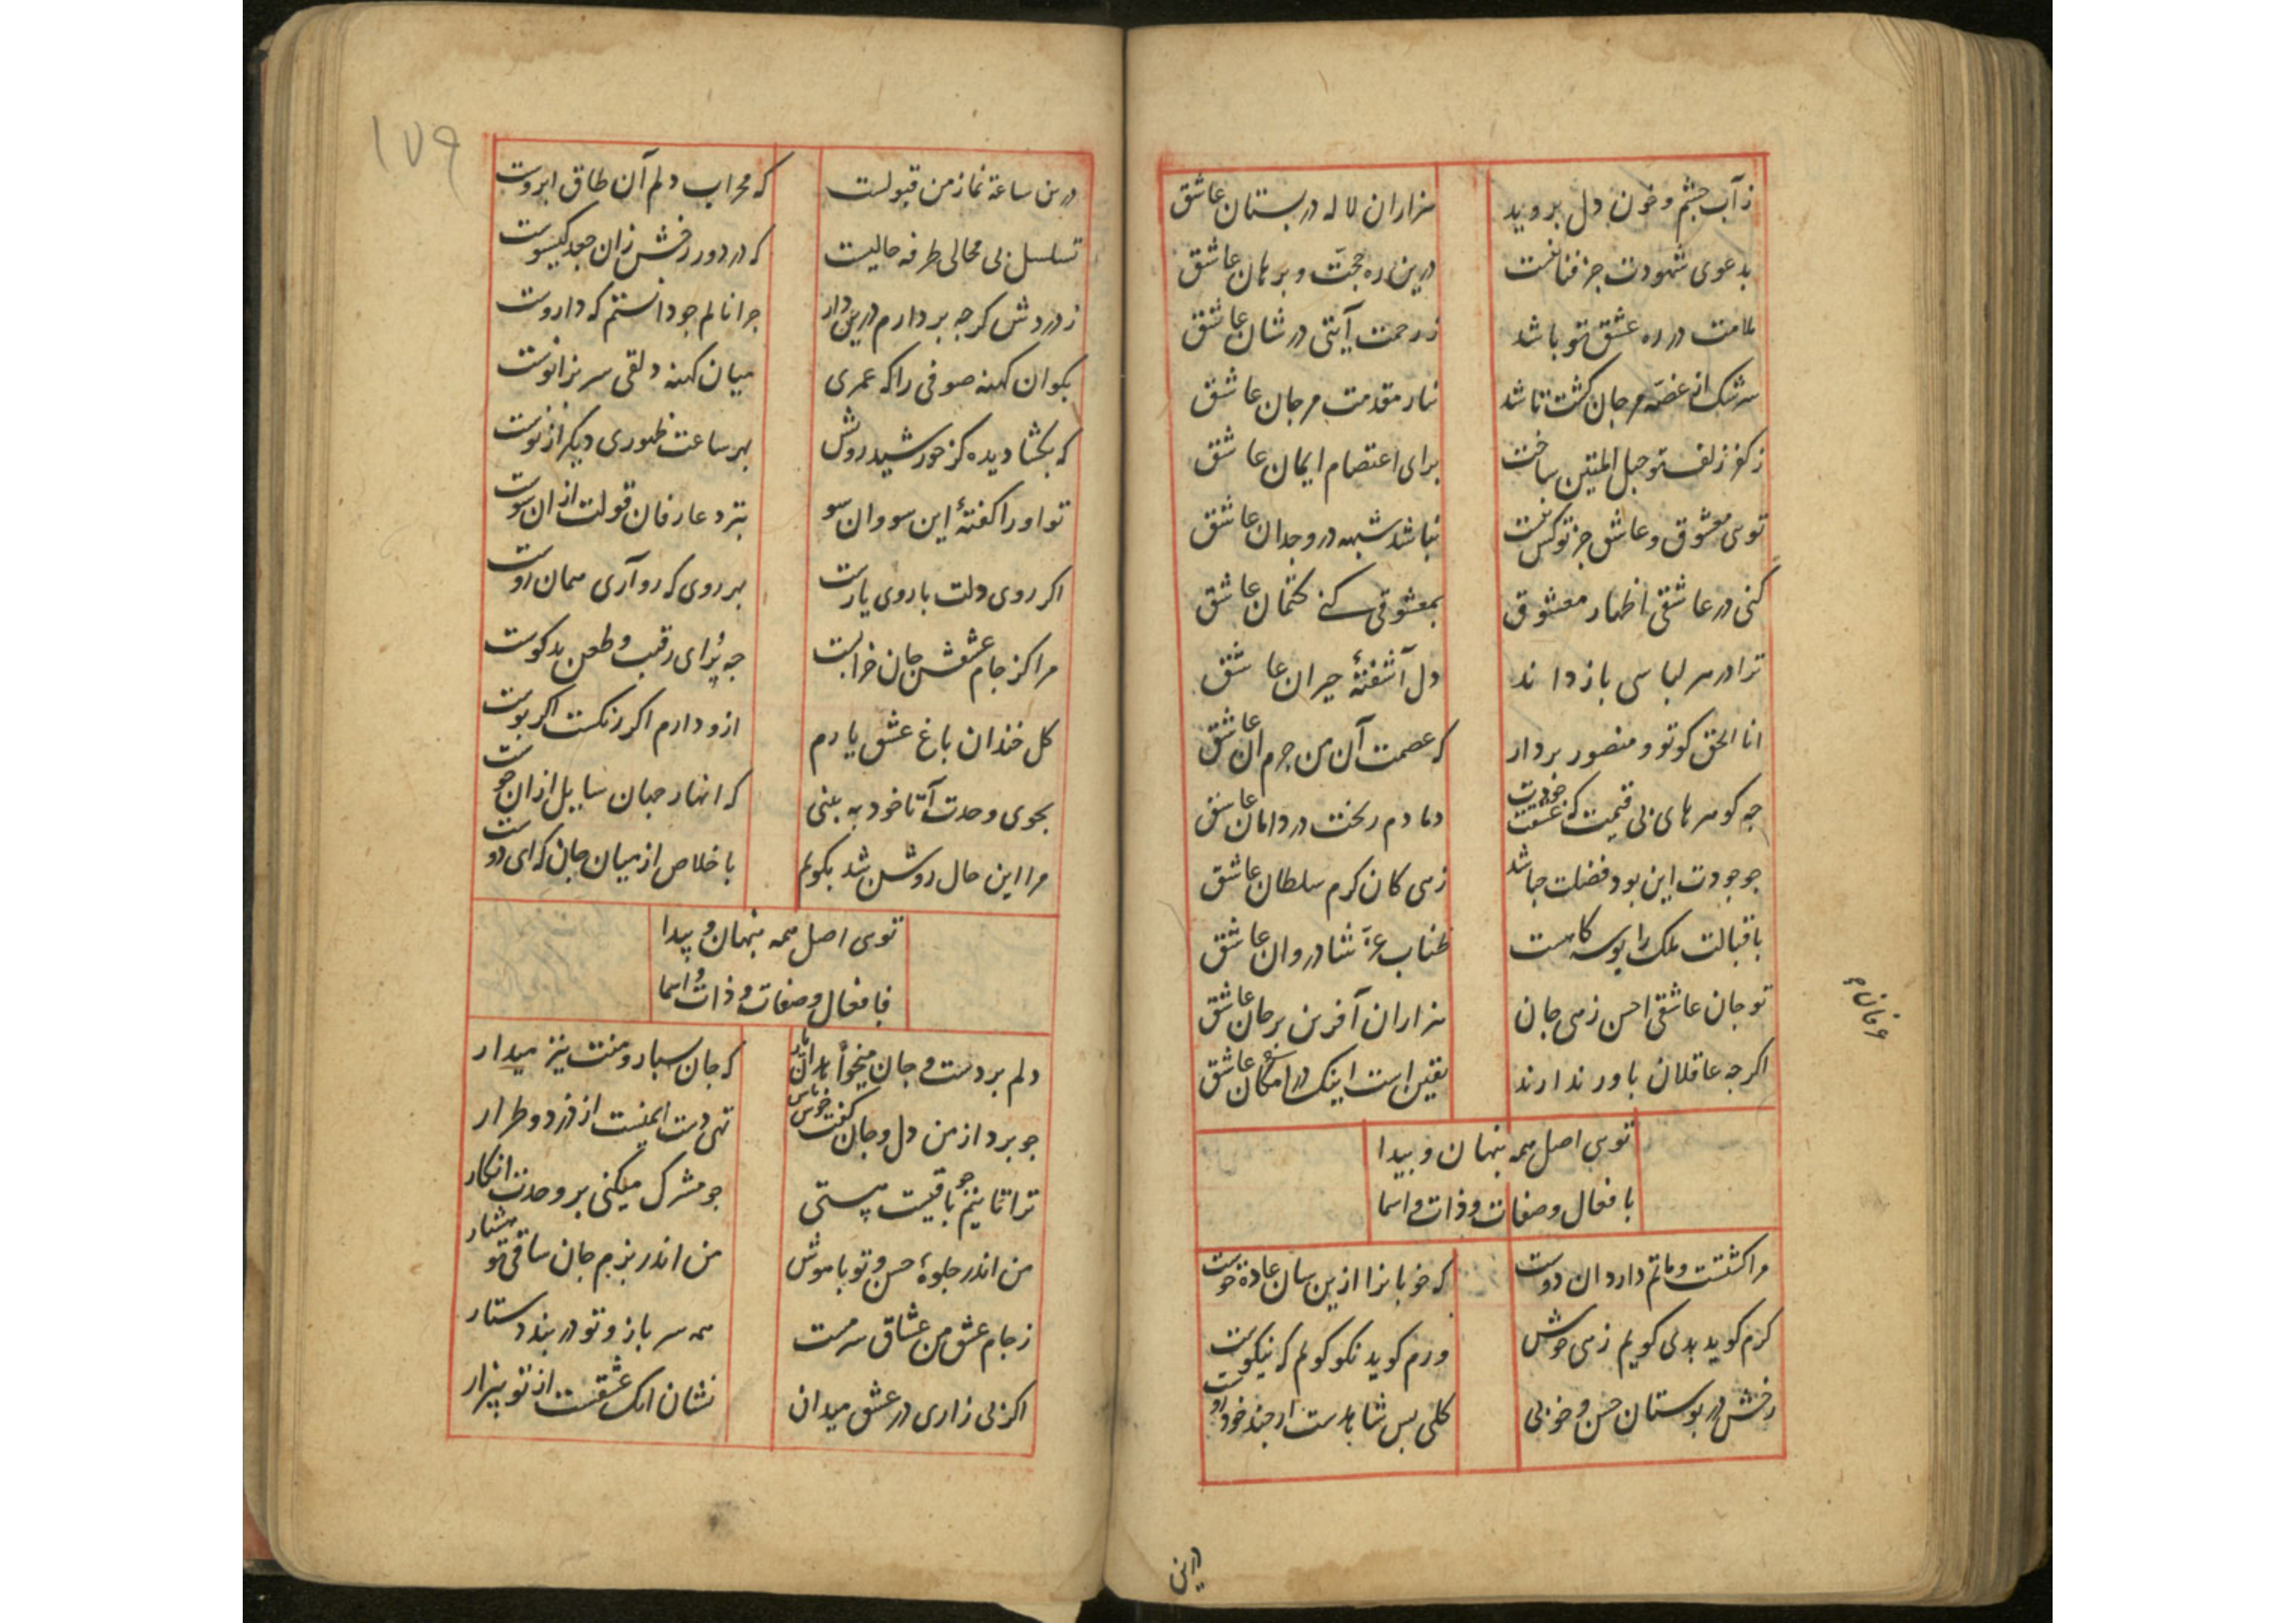 ز آب چشم و خون دل بروید
هزاران لاله در بستان عاشق
بدعوی شهودت جز فنا نیست
درین ره حجّت و برهان عاشق
ملامت در ره عشق تو باشد
ز رحمت آیتی در شان عاشق
سرشک از غصّه مرجان گشت تا شد
نثار مقدمت مرجان عاشق
ز کفر زلف تو حبل المتین ساخت
برای اعتصام ایمان عاشق
توی معشوق و عاشق جز تو کس نیست
نباشد شبهه در وجدان عاشق
کنی در عاشقی اظهار معشوق
بمعشوقی کنی کتمان عاشق
ترا در هر لباسی باز داند
دل آشفتهٔ حیران عاشق
انا الحق کو تو و منصور بردار
که عصمت آن من جرم آن عاشق
چه کوهرهای بی قیمت که عشقت
دمادم ریخت در دامان عاشق
چو جودت این بود فضلت چباشد
زهی کان کرم سلطان عاشق
باقبالت ملک را بوسه کاهست
طناب عزّ شادروان عاشق
تو جان عاشقی احسن زهی جان
هزاران آفرین بر جان عاشق
اکرچه عاقلان باور ندارند
یقین است اینک در امکان عاشق
توی اصل همه پنهان و پیدا
بافعال و صفات و ذات و اسما
مرا کشتست و ماتم دارد آن دوست
که خوبانرا ازین سان عادة و خوست
کرم کوید بدی کویم زهی خوش
ورم کوید نکو کویم که نیکوست
رخش در بوستان حسن و خوبی
کلی بس شاهدست ارچند خودروست
درین
۱۷۹
درین ساعة نماز من قبولست
که محراب دلم آن طاق ابروست
تسلسل بی محالی طرفه حالیست
که در دور رخش زان جعد کیسوست
ز دردش کرچه بردارم درین دار
چرا نالم چو دانستم که داروست
بکو آن کهنه صوفی را که عمری
میان کهنه دلقی سر بزانوست
که بکشا دیده کز خورشید رویش
بهر ساعت ظهوری دیکر از نوست
تو او را کفتهٔ این سو و آن سو
بنزد عارفان قولت از آن سوست
اکر روی دلت با روی یارست
بهر روی که رو آری همان روست
مرا کز جام عشقش جان خرابست
چه پروای رقیب و طعن بدکوست
کل خندان باغ عشق یارم
ازو دارم اکر رنکست اکر بوست
بجوی وحدت آ تا خود ببینی
که انهار جهان سایل از آن جوست
مرا این حال روشن شد بکویم
باخلاص از میان جان که ای دوست
توی اصل همه پنهان و پیدا
بافعال و صفات و ذات و اسما
دلم بردست و جان میخواهد آن یار
که جان بسپار و منت نیز میدار
چو برد از من دل و جان کفت خوش باش
تهی دست ایمنست از دزد و طرار
ترا تا نیم جو باقیست هستی
چو مشرک میکنی بر وحدت انکار
من اندر جلوهٔ حسن و تو باهوش
من اندر بزم جان ساقی تو هشیار
ز جام عشق من عشاق سرمست
همه سرباز و تو در بند دستار
اکر بی زاری در عشق میدان
نشان آنک عشقست از تو بیزار